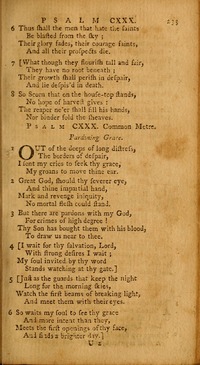 PSALM CXXX. 235
6 Thus ſhall the men that hate the ſaints
Be blaſted from the ſky ;
Their glory fades, their courage faints,
And all their proſpects die.
7 [What though they flouriſh tall and fair,
They have no root beneath ;
Their growth ſhall periſh in deſpair,
And lie deſpis'd in death.
8 So corn that on the houſe-top ſtands,
No hope of harveſt gives :
The reaper ne'er ſhall fill his hands,
Nor binder fold the ſheaves.
PSALM CXXX. Common Metre.
Pardoning Grace.
1 OUT of the deeps of long diſtreſs,
The borders of deſpair,
I ſent my cries to ſeek thy grace,
My groans to move thine ear.
2 Great God, ſhould thy ſeverer eye,
And thine impartial hand,
Mark and revenge iniquity,
No mortal fleſh could ſtand.
3 But there are pardons with my God,
For crimes of high degree !
Thy Son has bought them with his blood,
To draw us near to thee.
4 [I wait for thy ſalvation, Lord,
With ſtrong deſires I wait ;
My ſoul invited by thy word
Stands watching at thy gate.]
5 [Juſt as the guards that keep the night
Long for the morning ſkies,
Watch the firſt beams of breaking light,
And meet them with their eyes.
6 So waits my ſoul to ſee thy grace
And more intent than they,
Meets the firſt openings of thy face,
And finds a brighter day.]
U 2